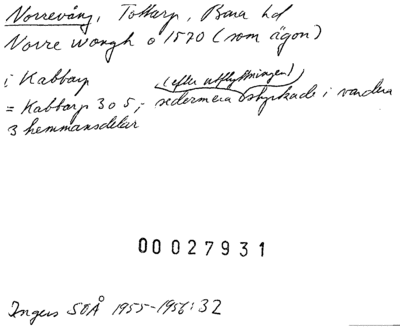 Norrevång, Tottarp, Bara hd
Norre wongh o 1570 (som ägon)
i Kabbarp (efter utflyttningen)
= Kabbarp 3 o 5; sedermera styckade i vardera
3 hemmansdelar
00027931
Ingers SOÅ 1955-1956:32